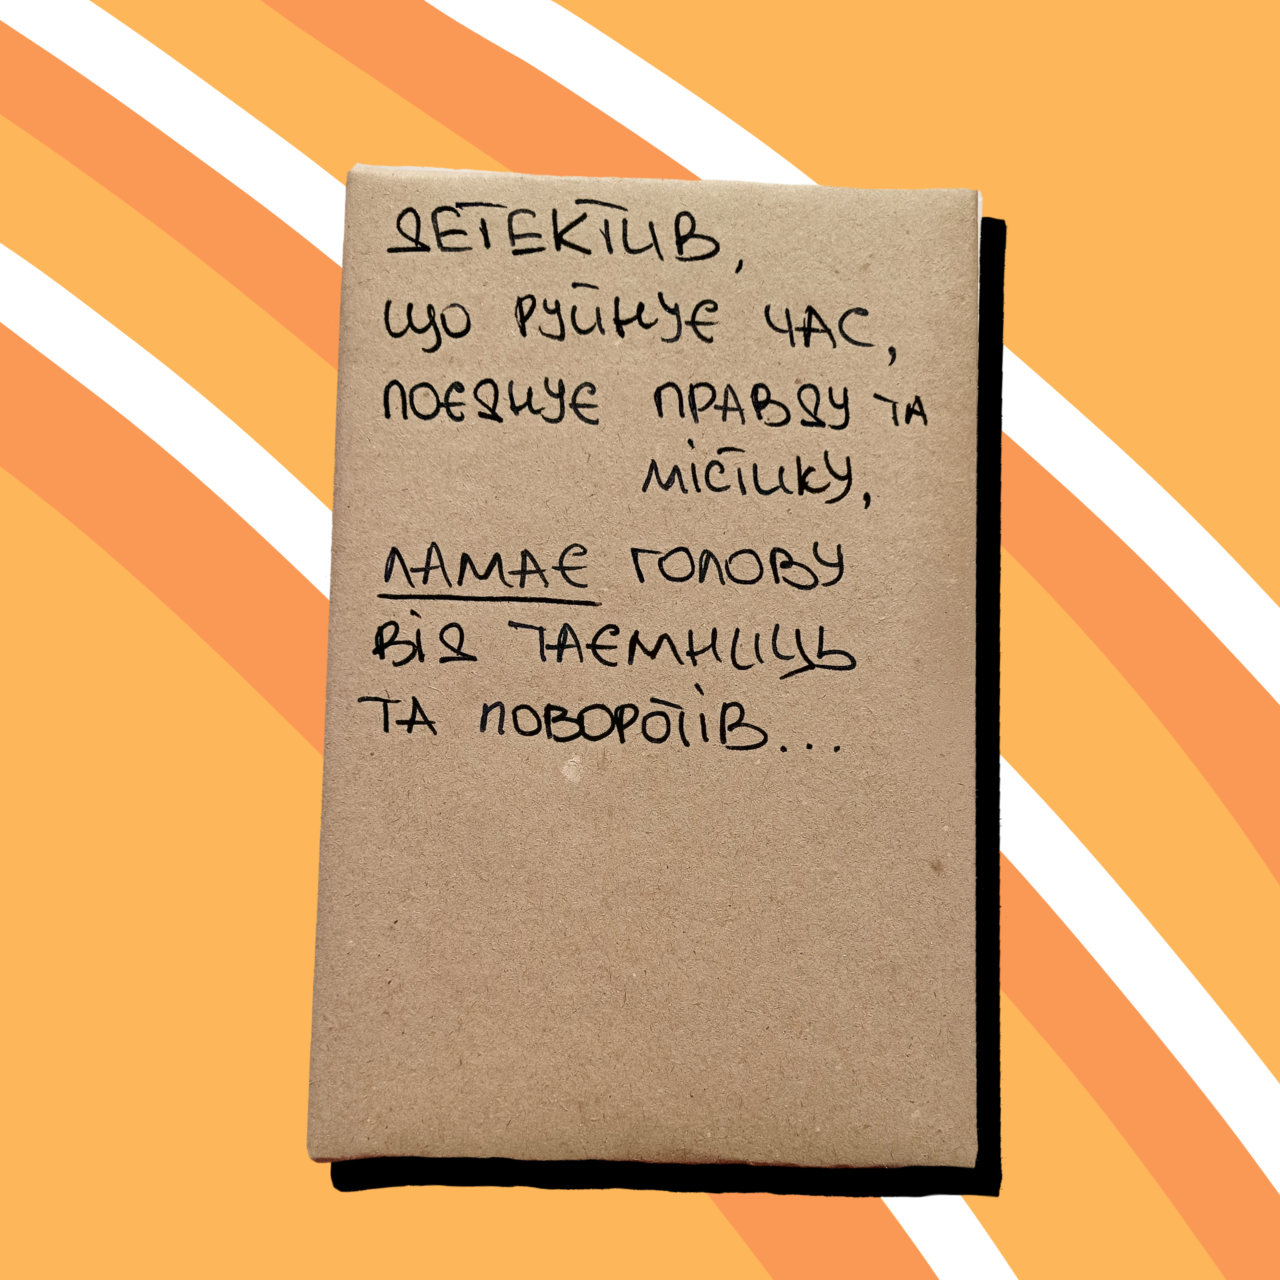 ДЕТЕКТИВ,
ЩО РУЙНУЄ ЧАС,
ПОЄДНУЄ ПРАВДУ ТА
МІСТИКУ,
ЛАМАЄ ГОЛОВУ
ВІД ТАЄМНИЦЬ
ТА ПОВОРОТІВ...